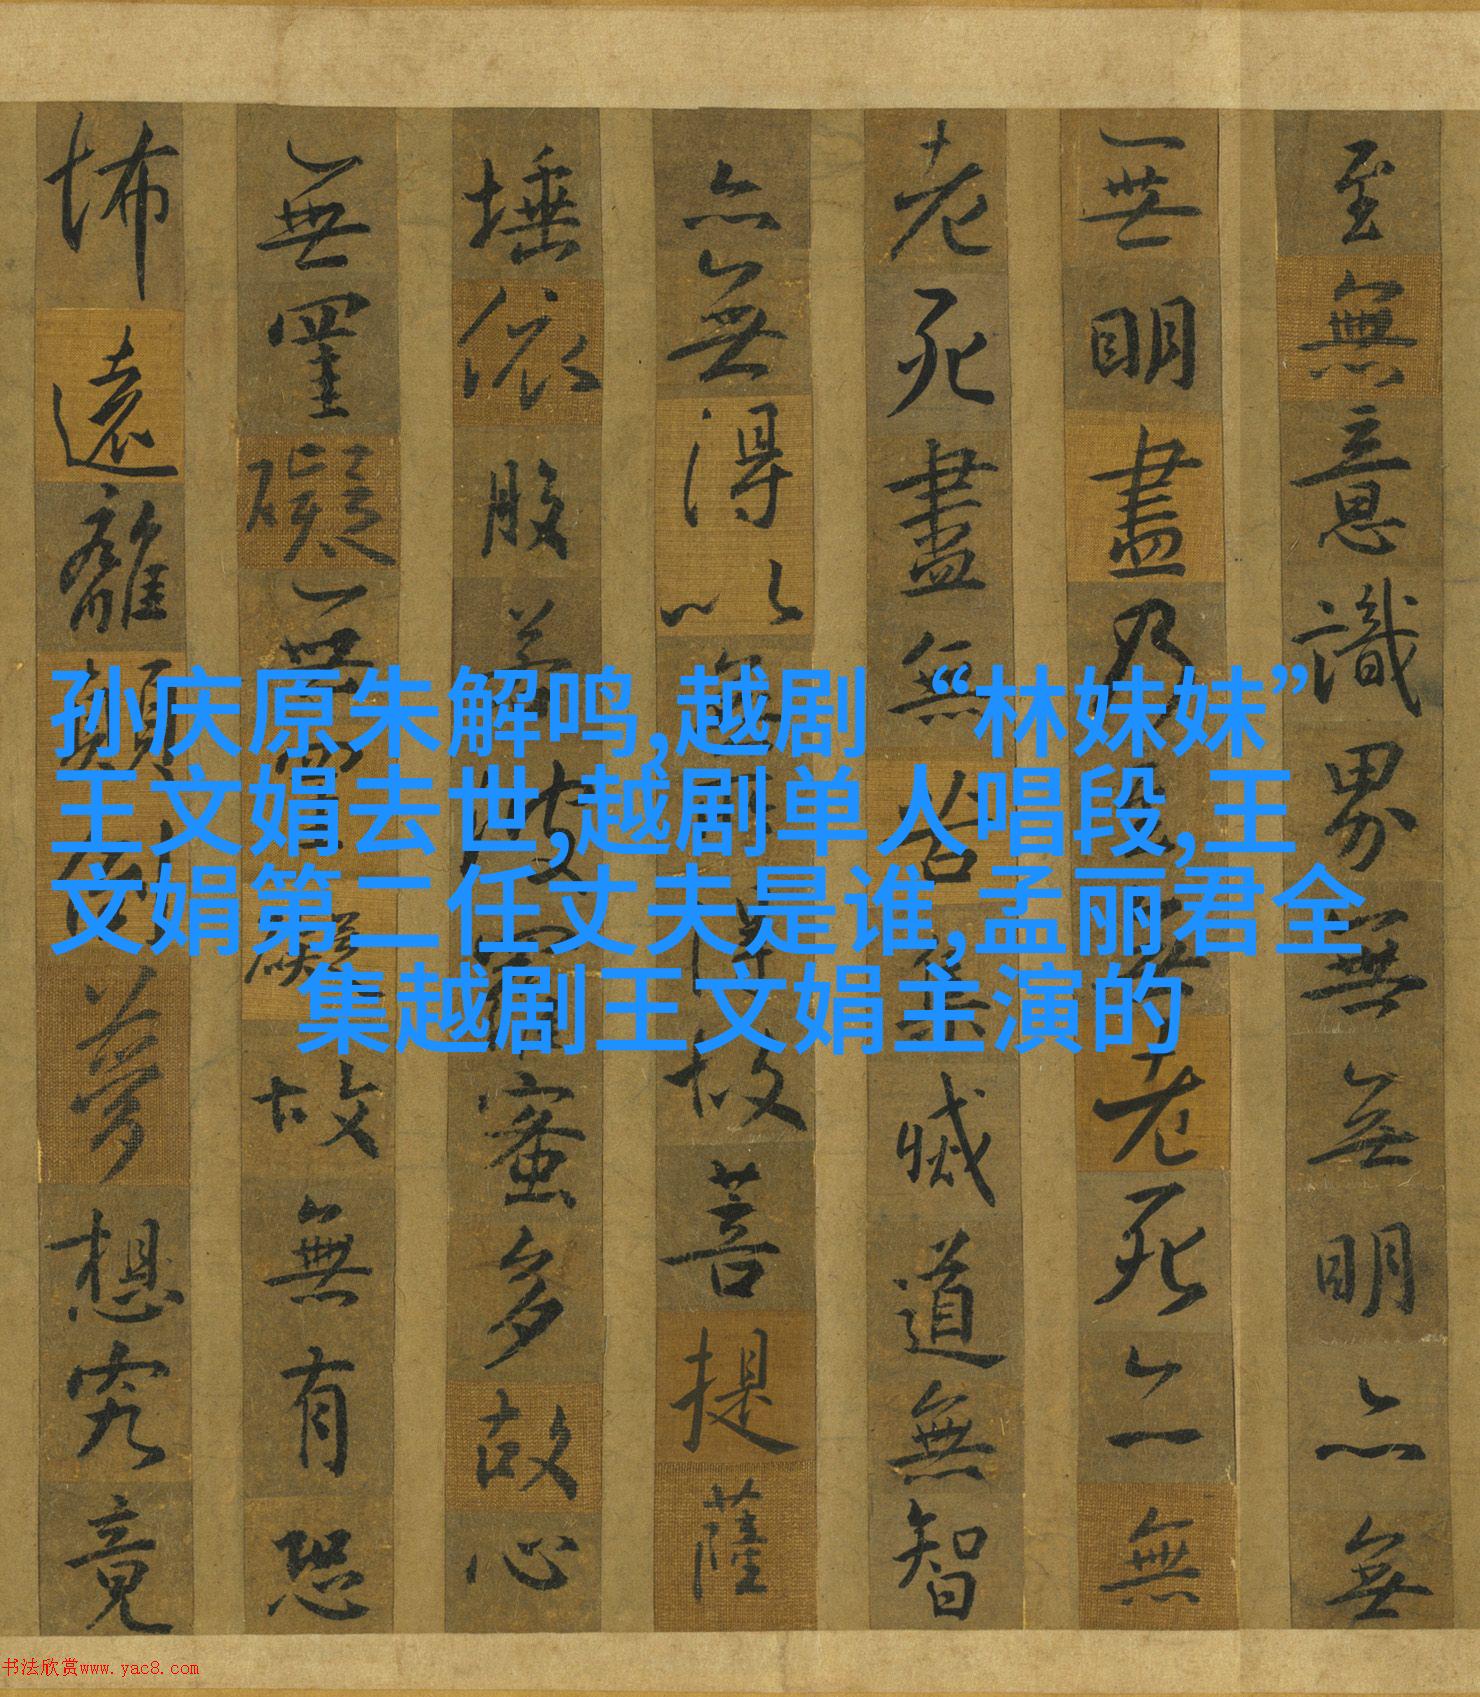 至無意識界無無明亦無
無明盡乃至無老死亦無
老死盡無苦集滅道無智
亦無得以無所得故菩提薩
埵依般若波羅蜜多故心
無罣礙無罣礙故無有恐
怖遠離顛倒夢想究竟
孙庆原朱解鸣,越剧“林妹妹”
王文娟去世,越剧单人唱段,王
文娟第二任丈夫是谁,孟丽君全
集越剧王文娟主演的
书法欣赏www.yac8.com